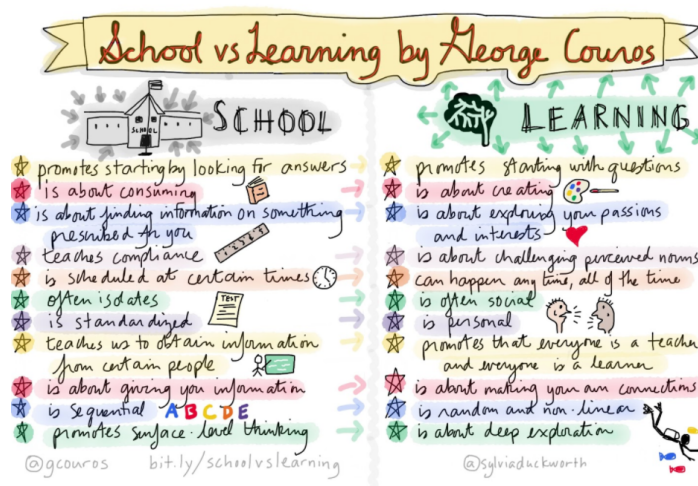 School vs Learning by George Couros
SCHOOL
SCHOOL
promotes starting by looking for answers
is about consuming
is about finding information on something
prescribed for you
teaches compliance
is scheduled at certain times
often isolates
TEST
is standardized
teaches us to obtain information
from certain people
is about giving you information
is sequential A B C D E
promotes surface-level thinking
@gcouros bit.ly/schoolvslearning
LEARNING
promotes starting with questions
is about creating
is about exploring your passions
and interests
is about challenging perceived norms
can happen any time, all of the time
is often social
is personal
promotes that everyone is a teacher
and everyone is a learner
is about making your own connections
is random and non-linear
is about deep exploration
@sylviaduckworth